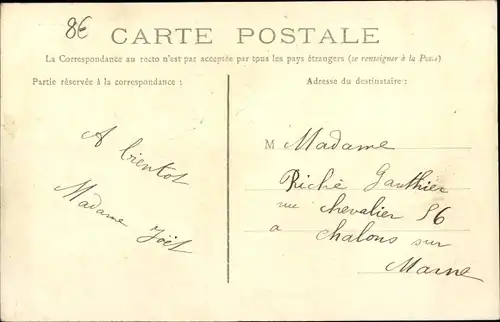 8€
CARTE POSTALE
La Correspondance au recto n'est pas acceptée par tous les pays étrangers (se renseigner à la Poste)
Partie réservée à la correspondance :
Adresse du destinataire :
A bientot
Madame Joël
M Madame
Riché Gauthier
rue chevalier 56
a chalons sur
Marne